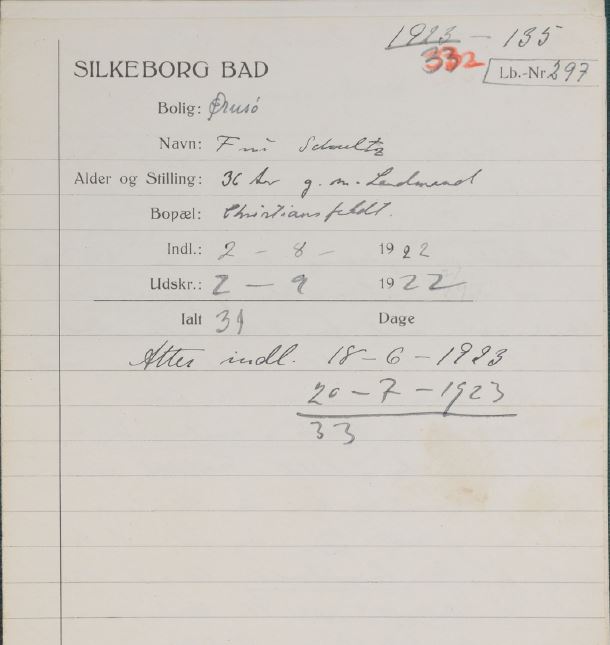 1923 - 135
332
SILKEBORG BAD
Lb.-Nr 297
Bolig: Ørnsö
Navn: Fru Schultz
Alder og Stilling: 36 Aar g. m. Landmand
Bopæl: Christiansfeldt.
Indl.: 2 - 8 - 1922
Udskr.: 2 - 9 1922
Ialt 31 Dage
Atter indl. 18-6-1923
20-7-1923
33